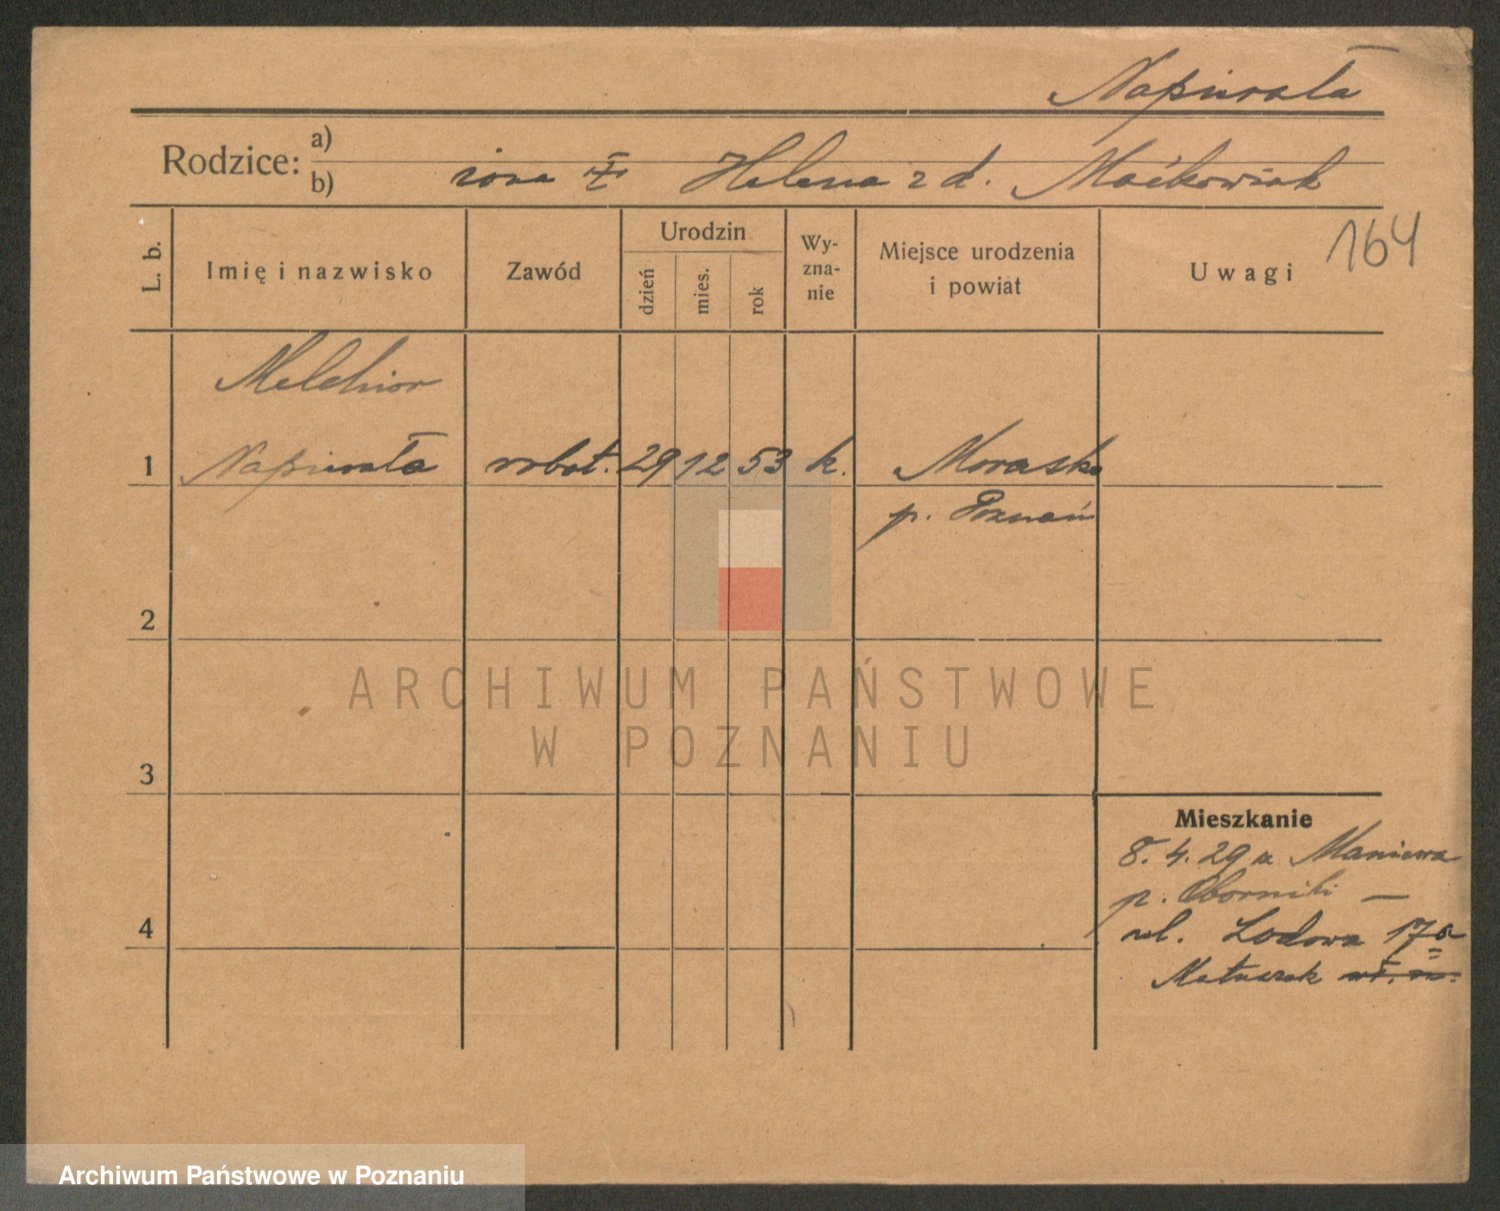 Napierała
Rodzice: a)
b) żona I Helena z d. Maćkowiak
164
L. b. Imię i nazwisko Zawód Urodzin dzień mies. rok Wy-zna-nie Miejsce urodzenia i powiat Uwagi
Melchior
1 Napierała robot. 29 12 53 k. Morasko
p. Poznań
2
ARCHIWUM PAŃSTWOWE
W POZNANIU
3
Mieszkanie
8. 4. 29 z Maniewa
p. Oborniki —
4
ul. Lodowa 17a
Matuszak
Archiwum Państwowe w Poznaniu